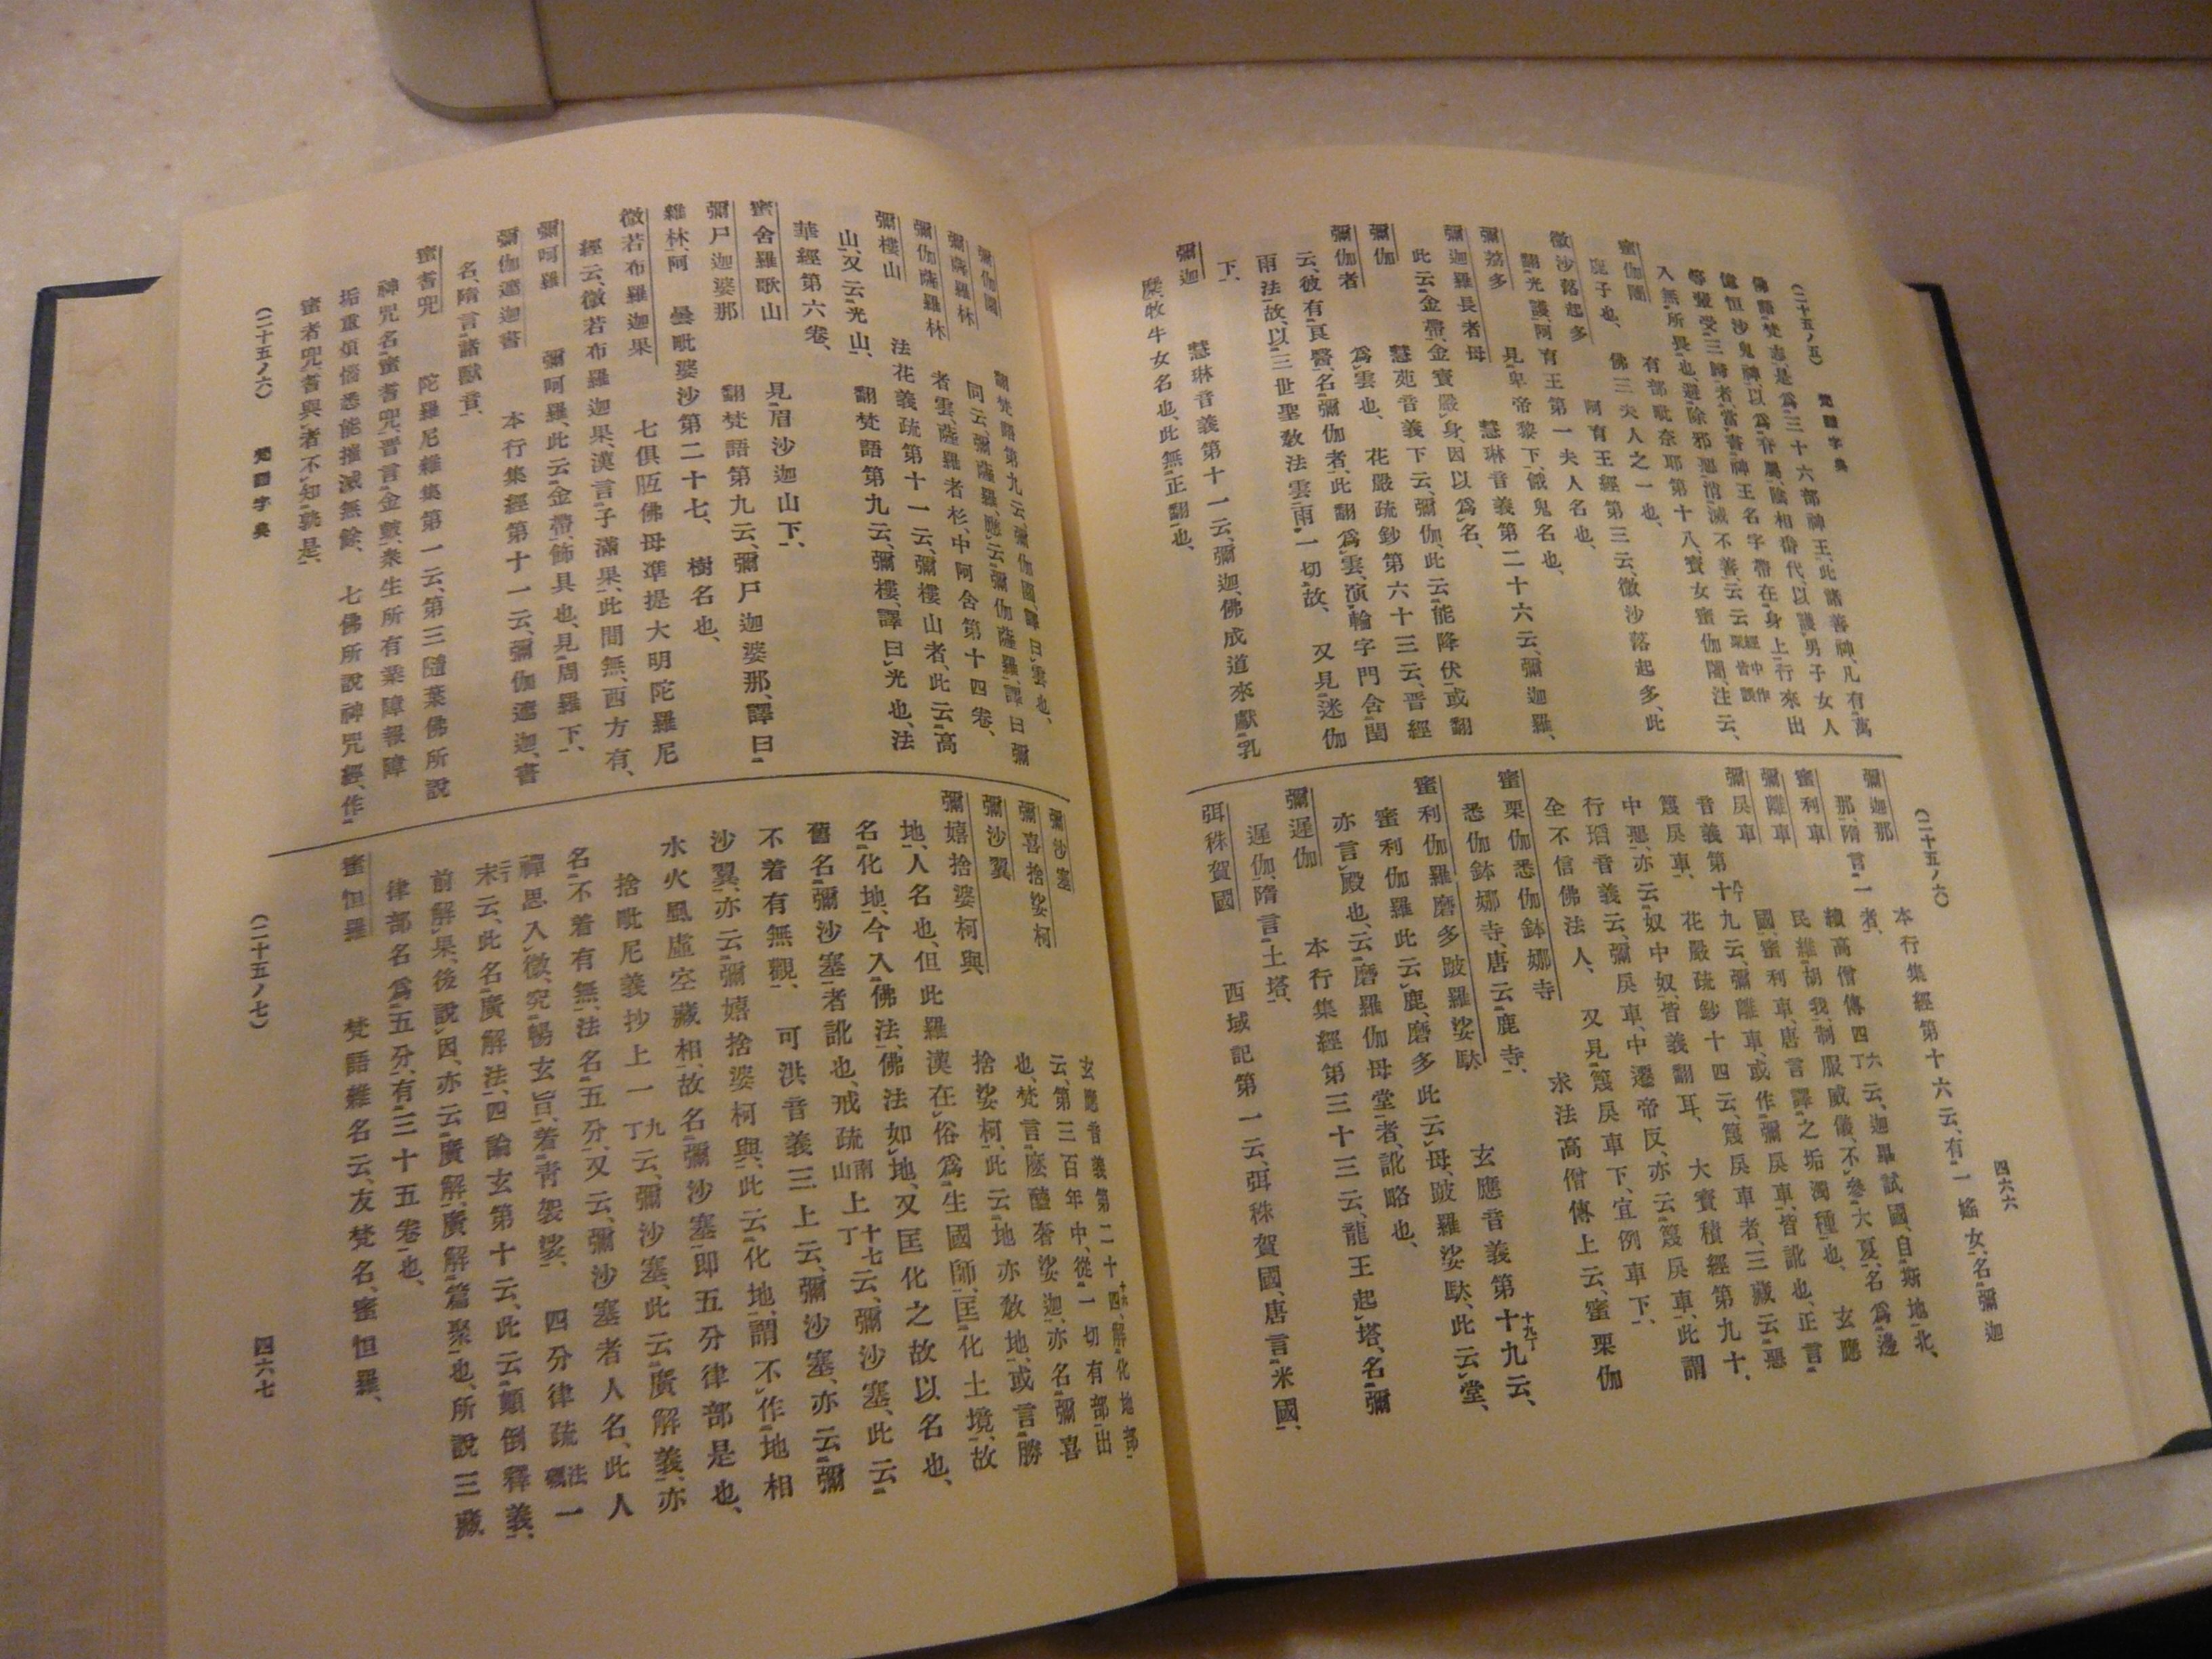 (二十五ノ五)　梵語字典
佛語梵志是爲三十六部神王、此諸善神、凡有萬
億恒沙鬼神、以爲眷屬、陰相番代、以護男子女人
等輩受三歸者、當書神王名字帶在身上、行來出
入無所畏也、避除邪惡、消滅不善、云云
蜜伽闍　有部毗奈耶第十八、寶女蜜伽闍、注云、
鹿子也、佛三夫人之一也、
微沙落起多　阿育王經第三云、微沙落起多、此
翻光護、阿育王第一夫人名也、
彌荔多　見卑帝黎下、餓鬼名也、
彌迦羅長者母　慧琳音義第二十六云、彌迦羅、
此云金帶、金寶嚴身、因以爲名、
彌伽　慧苑音義下云、彌伽、此云能降伏、或翻
爲雲也、花嚴疏鈔第六十三云、晋經
彌伽者
云、彼有良醫、名彌伽者、此翻爲雲、演輪字門含閏
雨法故、以三世聖教法雲雨一切故、又見迷伽
下、
彌迦　慧琳音義第十一云、彌迦、佛成道來獻乳
糜、牧牛女名也、此無正翻也、
(二十五ノ六)　四六六
本行集經第十六云、有一婬女、名彌迦
彌迦那
那、隋言一者、
蜜利車　續高僧傳四六丁云、迦畢試國、自斯地北、
彌離車　民維胡我、制服威儀、不參大夏、名爲邊
國、蜜利車、唐言譯之垢濁種也、玄應
彌戾車
音義第十八丁九云、彌離車、或作彌戾車、皆訛也、正言
篾戾車、花嚴疏鈔十四云、篾戾車者、三藏云惡
中惡、亦云奴中奴、皆義翻耳、大寶積經第九十、
行瑫音義云、彌戾車、中邊帝反、亦云篾戾車、此謂
全不信佛法人、又見篾戾車下、宜例車下、
蜜栗伽悉伽鉢娜寺　求法高僧傳上云、蜜栗伽
悉伽鉢娜寺、唐云鹿寺、
蜜利伽羅磨多跛羅娑馱　玄應音義第十九丁九云、
蜜利伽羅此云鹿、磨多此云母、跛羅娑馱、此云堂、
亦言殿也、云磨羅伽母堂者、訛略也、
彌遲伽　本行集經第三十三云、龍王起塔、名彌
遲伽、隋言土塔、
弭秣賀國　西域記第一云、弭秣賀國、唐言米國、
彌伽國　翻梵語第九云、彌伽國、譯曰雲也、
彌薩羅林　同云、彌薩羅、應云彌伽薩羅、譯曰彌
彌伽薩羅林　者雲、薩羅者杉、中阿含第十四卷、
彌樓山　法花義疏第十一云、彌樓山者、此云高
山、又云光山、翻梵語第九云、彌樓、譯曰光也、法
華經第六卷、
蜜舍羅歌山　見眉沙迦山下、
彌尸迦婆那　翻梵語第九云、彌尸迦婆那、譯曰
雜林、阿曇毗婆沙第二十七、樹名也、
微若布羅迦果　七俱胝佛母準提大明陀羅尼
經云、微若布羅迦果、漢言子滿果、此間無、西方有、
彌呵羅　彌呵羅、此云金帶、飾具也、見周羅下、
彌伽遮迦書　本行集經第十一云、彌伽遮迦、書
名、隋言諸獸音、
蜜耆兜　陀羅尼雜集第一云、第三隨葉佛所說
神咒名、蜜耆兜、晋言金鼓、衆生所有業障報障
垢重煩惱悉能摧滅無餘、七佛所說神咒經、作
蜜者兜、耆與者不知孰是、
(二十五ノ六)　梵語字典
彌沙塞　玄應音義第二十四十六、解化地部、
彌喜捨娑柯　云、第三百年中、從一切有部出
彌沙翼　也、梵言麽醯奢娑迦、亦名彌喜
彌嬉捨婆柯與　捨娑柯、此云地亦敎地、或言勝
地、人名也、但此羅漢在俗爲生國師、匡化土境、故
名化地、今入佛法、佛法如地、又匡化之故以名也、
舊名彌沙塞者訛也、戒疏南山上十七丁云、彌沙塞、此云
不着有無觀、可洪音義三上云、彌沙塞、亦云彌
沙翼、亦云彌嬉捨婆柯與、此云化地、謂不作地相
水火風虛空藏相、故名彌沙塞、即五分律部是也、
捨毗尼義抄上一九丁云、彌沙塞、此云廣解義、亦
名不着有無、法名五分、又云、彌沙塞者人名、此人
禪思入微、究暢玄旨、着青袈裟、四分律疏法礪一
末三行云、此名廣解法、四論玄第十云、此云顛倒釋義、
前解果、後說因、亦云廣解、廣解篇聚也、所說三藏
律部名爲五分、有三十五卷也、
蜜怛羅　梵語雜名云、友梵名、蜜怛羅、
(二十五ノ七)　四六七